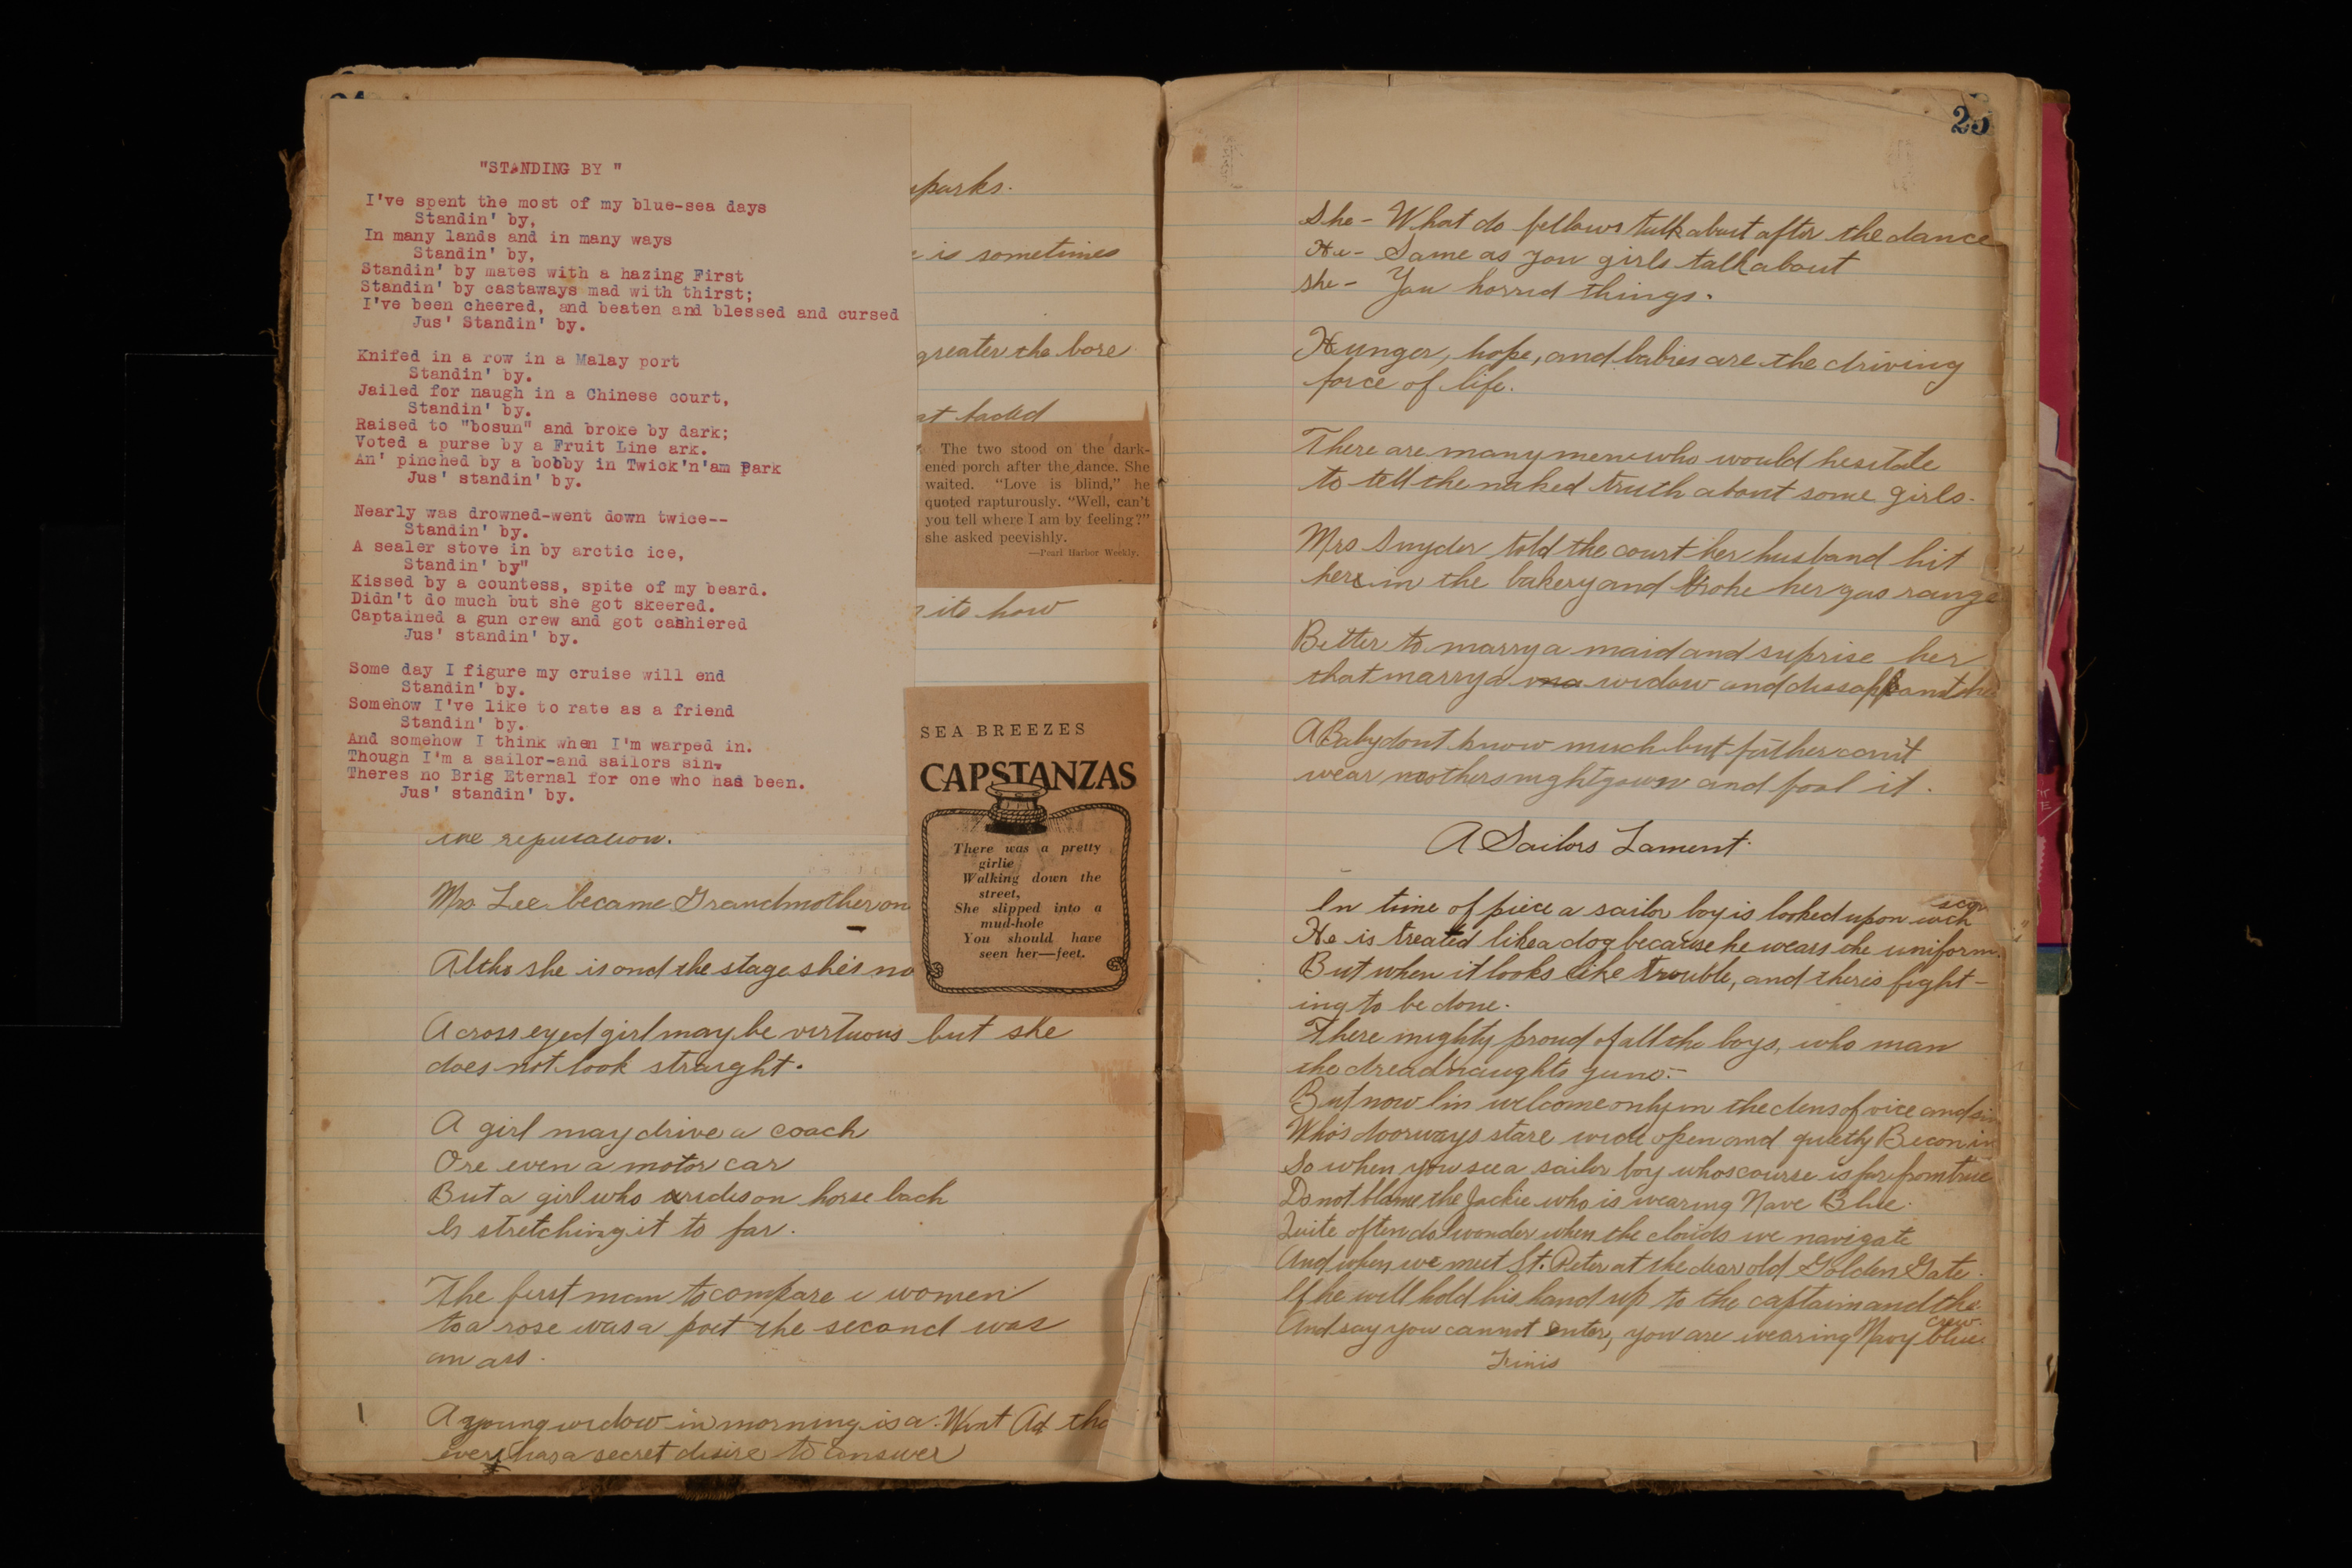 "STANDING BY "
I've spent the most of my blue-sea days
Standin' by,
In many lands and in many ways
Standin' by,
Standin' by mates with a hazing First
Standin' by castaways mad with thirst;
I've been cheered, and beaten and blessed and cursed
Jus' Standin' by.
Knifed in a row in a Malay port
Standin' by.
Jailed for naugh in a Chinese court,
Standin' by.
Raised to "bosun" and broke by dark;
Voted a purse by a Fruit Line ark.
An' pinched by a bobby in Twick'n'am Park
Jus' standin' by.
Nearly was drowned-went down twice--
Standin' by.
A sealer stove in by arctic ice,
Standin' by"
Kissed by a countess, spite of my beard.
Didn't do much but she got skeered.
Captained a gun crew and got cashiered
Jus' standin' by.
Some day I figure my cruise will end
Standin' by.
Somehow I've like to rate as a friend
Standin' by.
And somehow I think when I'm warped in.
Though I'm a sailor-and sailors sin.
Theres no Brig Eternal for one who has been.
Jus' standin' by.
sparks.
is sometimes
greater the bore
faded
The two stood on the dark-
ened porch after the dance. She
waited. "Love is blind," he
quoted rapturously. "Well, can't
you tell where I am by feeling?"
she asked peevishly.
—Pearl Harbor Weekly.
its how
SEA BREEZES
CAPSTANZAS
There was a pretty
girlie
Walking down the
street,
She slipped into a
mud-hole
You should have
seen her—feet.
reputation.
Mrs Lee became Grandmother on
Altho she is ond the stage she's no
A cross eyed girl may be virtuous but she
does not look straight.
A girl may drive a coach
Ore even a motor car
But a girl who rides on horse back
Is stretching it to far.
The first man to compare a women
to a rose was a poet the second was
an ass.
A young widow in morning is a Want Ad tha
every has a secret desire to answer
25
She - What do fellows talk about after the dance
He - Same as you girls talk about
she - You horrid things.
Hunger, hope, and babies are the driving
force of life.
There are many men who would hesitate
to tell the naked truth about some girls.
Mrs Snyder told the court her husband hit
her in the bakery and broke her gas range
Better to marry a maid and suprise her
that marry a widow and dissappoint her
A Baby dont know much but father can't
wear mothers nightgown and fool it.
A Sailors Lament.
In time of piece a sailor boy is looked upon wich scorn
He is treated like a dog because he wears the uniform.
But when it looks like trouble, and there's fight-
ing to be done.
There mighty proud of all the boys, who man
the dreadnaughts guns.-
But now I'm welcome only in the dens of vice and sin
Who's doorways stare wide open and quietly Becon in
So when you see a sailor boy whos course is far from true
Do not blame the Jackie who is wearing Nave Blue.
Quite often do I wonder when the clouds we navigate
And when we meet St. Peter at the dear old Golden Gate.
If he will hold his hand up to the captain and the crew.
And say you cannot enter, you are wearing Navy blue.
Finis